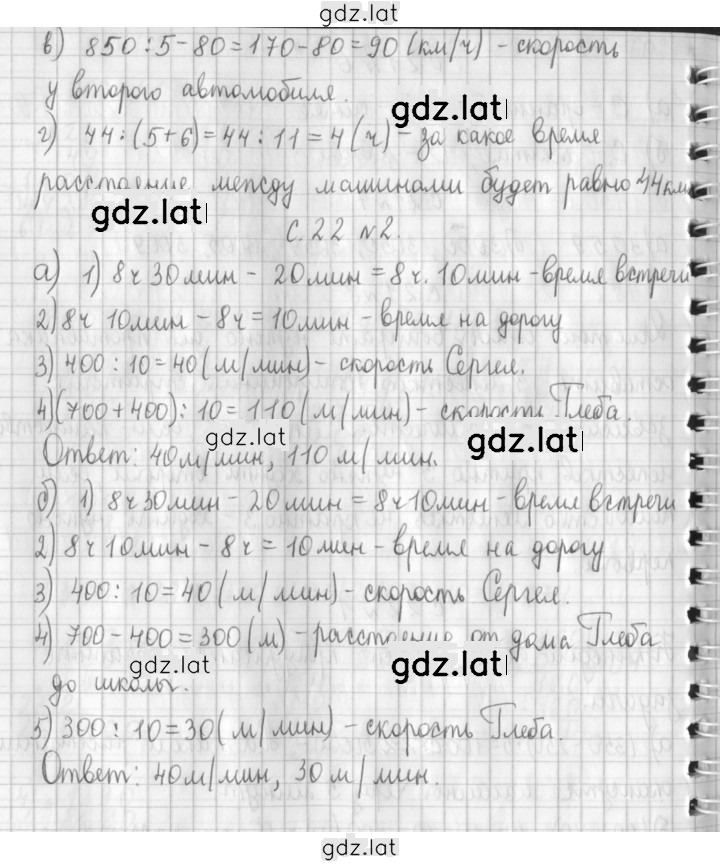 gdz.lat
в) 850 : 5 - 80 = 170 - 80 = 90 (км/ч) - скорость
у второго автомобиля.
gdz.lat
г) 44 : (5+6) = 44 : 11 = 4 (ч) - за какое время
расстояние между машинами будет равно 44 км.
gdz.lat
с. 22 №2.
а) 1) 8ч 30мин - 20мин = 8ч. 10мин - время встречи
2) 8ч 10мин - 8ч = 10мин - время на дорогу
3) 400 : 10 = 40 (м/мин) - скорость Сергея.
4) (700 + 400) : 10 = 110 (м/мин) - скорость Глеба.
gdz.lat gdz.lat
Ответ: 40м/мин, 110 м/мин.
б) 1) 8ч 30мин - 20мин = 8ч 10мин - время встречи
2) 8ч 10мин - 8ч = 10мин - время на дорогу
3) 400 : 10 = 40 (м/мин) - скорость Сергея.
4) 700 - 400 = 300 (м) - расстояние от дома Глеба
gdz.lat gdz.lat
до школы.
5) 300 : 10 = 30 (м/мин) - скорость Глеба.
Ответ: 40м/мин, 30 м/мин.
gdz.lat